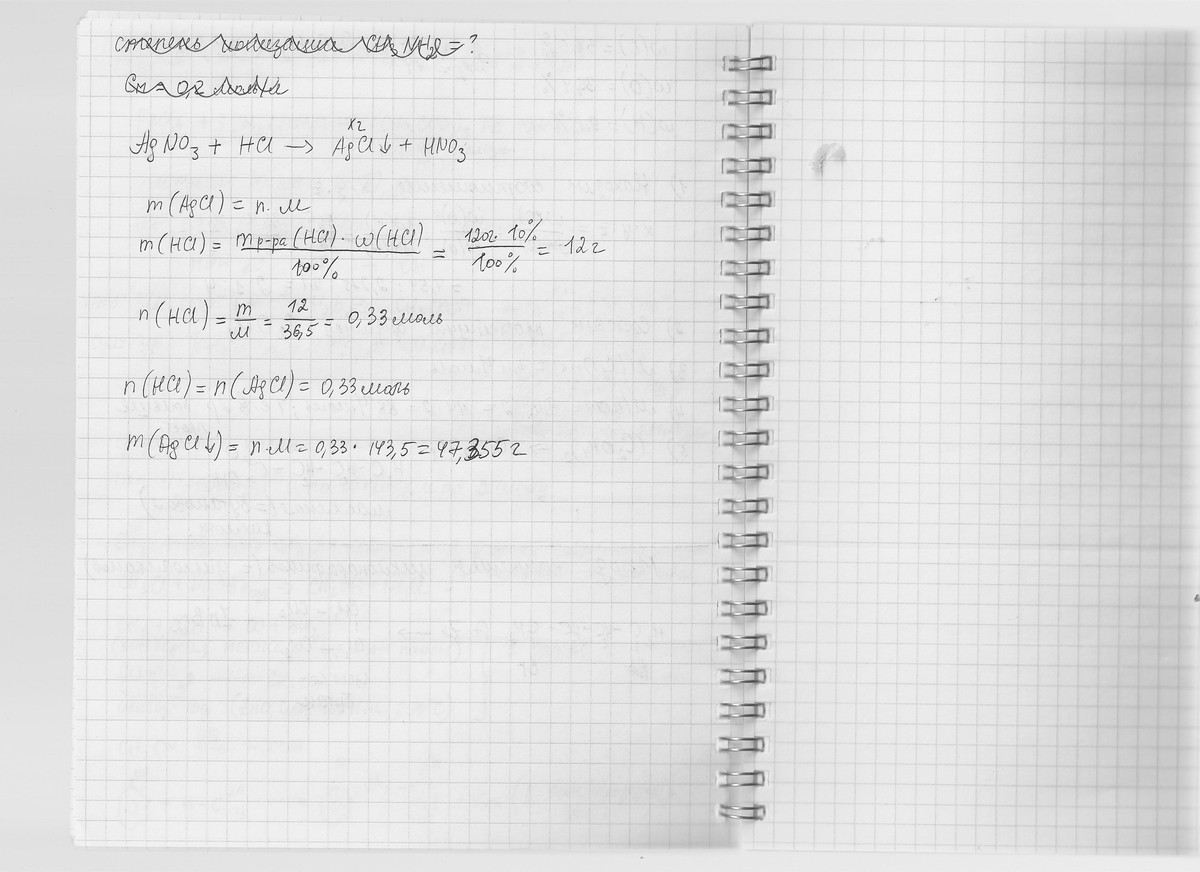 степень ионизации CH3NH2 = ?
См = 0,2 моль/л
x г
AgNO3 + HCl → AgCl↓ + HNO3
m(AgCl) = n·M
m(HCl) = mр-ра(HCl)·ω(HCl) / 100% = 120г·10% / 100% = 12г
n(HCl) = m / M = 12 / 36,5 = 0,33моль
n(HCl) = n(AgCl) = 0,33моль
m(AgCl↓) = n·M = 0,33·143,5 = 47,355г